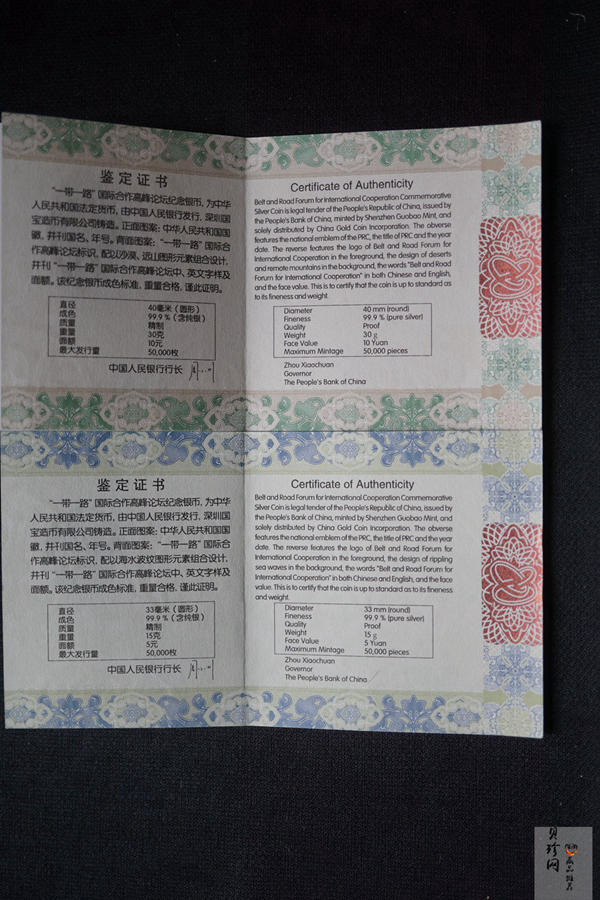 鉴定证书
“一带一路”国际合作高峰论坛纪念银币，为中华
人民共和国法定货币，由中国人民银行发行，深圳国
宝造币有限公司铸造。正面图案：中华人民共和国国
徽，并刊国名、年号。背面图案：“一带一路”国际合
作高峰论坛标识，配以沙漠、远山图形元素组合设计，
并刊“一带一路”国际合作高峰论坛中、英文字样及
面额。该纪念银币成色标准，重量合格，谨此证明。
直径 40毫米（圆形）
成色 99.9％（含纯银）
质量 精制
重量 30克
面额 10元
最大发行量 50,000枚
中国人民银行行长
Certificate of Authenticity
Belt and Road Forum for International Cooperation Commemorative
Silver Coin is legal tender of the People's Republic of China, issued by
the People's Bank of China, minted by Shenzhen Guobao Mint, and
solely distributed by China Gold Coin Incorporation. The obverse
features the national emblem of the PRC, the title of PRC and the year
date. The reverse features the logo of Belt and Road Forum for
International Cooperation in the foreground, the design of deserts
and remote mountains in the background, the words "Belt and Road
Forum for International Cooperation" in both Chinese and English,
and the face value. This is to certify that the coin is up to standard as
to its fineness and weight.
Diameter 40 mm (round)
Fineness 99.9 % (pure silver)
Quality Proof
Weight 30 g
Face Value 10 Yuan
Maximum Mintage 50,000 pieces
Zhou Xiaochuan
Governor
The People's Bank of China
鉴定证书
“一带一路”国际合作高峰论坛纪念银币，为中华
人民共和国法定货币，由中国人民银行发行，深圳国
宝造币有限公司铸造。正面图案：中华人民共和国国
徽，并刊国名、年号。背面图案：“一带一路”国际合
作高峰论坛标识，配以海水波纹图形元素组合设计，
并刊“一带一路”国际合作高峰论坛中、英文字样及
面额。该纪念银币成色标准，重量合格，谨此证明。
直径 33毫米（圆形）
成色 99.9％（含纯银）
质量 精制
重量 15克
面额 5元
最大发行量 50,000枚
中国人民银行行长
Certificate of Authenticity
Belt and Road Forum for International Cooperation Commemorative
Silver Coin is legal tender of the People's Republic of China, issued by
the People's Bank of China, minted by Shenzhen Guobao Mint, and
solely distributed by China Gold Coin Incorporation. The obverse
features the national emblem of the PRC, the title of PRC and the year
date. The reverse features the logo of Belt and Road Forum for
International Cooperation in the foreground, the design of rippling
sea waves in the background, the words "Belt and Road Forum for
International Cooperation" in both Chinese and English, and the face
value. This is to certify that the coin is up to standard as to its fineness
and weight.
Diameter 33 mm (round)
Fineness 99.9 % (pure silver)
Quality Proof
Weight 15 g
Face Value 5 Yuan
Maximum Mintage 50,000 pieces
Zhou Xiaochuan
Governor
The People's Bank of China
贝珍网